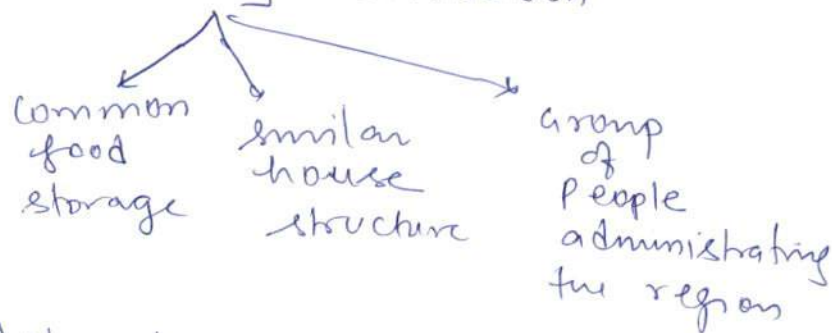 Common
food
storage
similar
house
structure
Group
of
People
administrating
the region